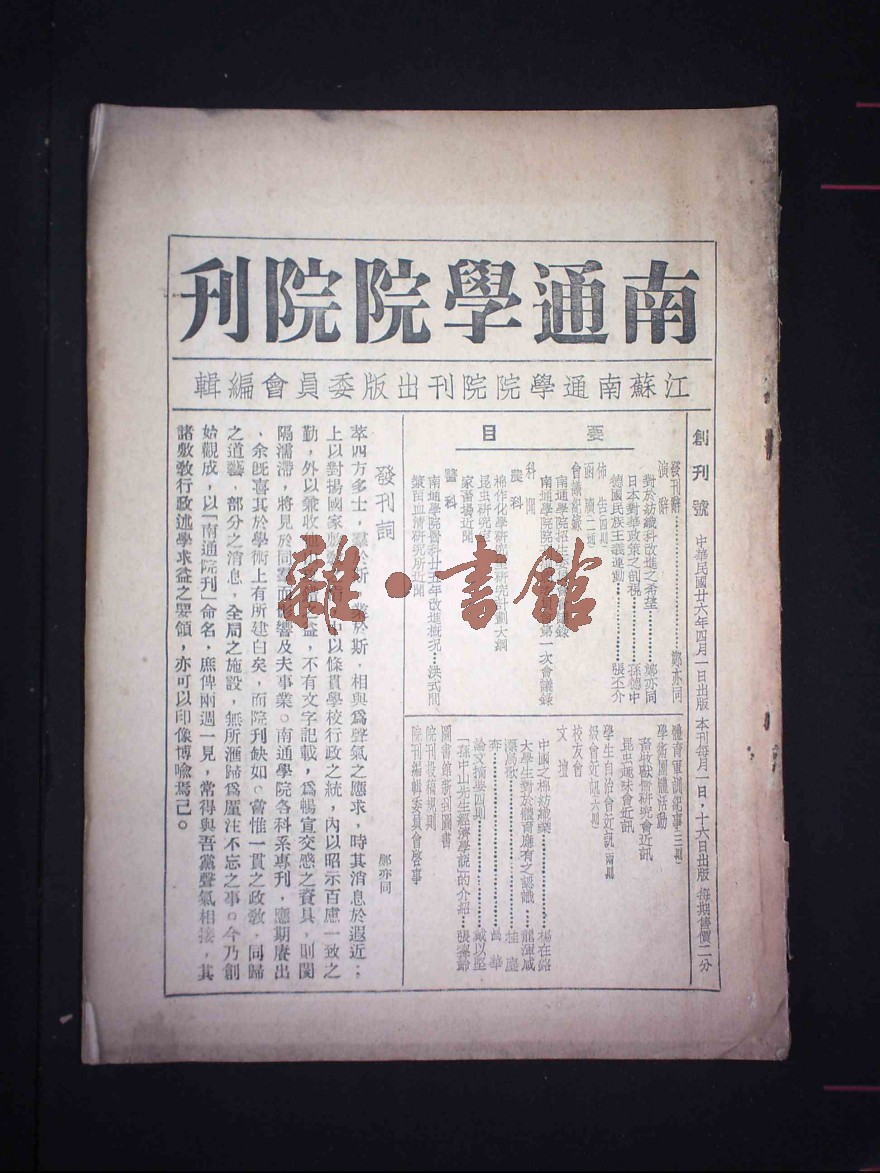 南通學院院刊
江蘇南通學院院刊出版委員會編輯
創刊號 中華民國廿六年四月一日出版 本刊每月一日,十六日出版 每期售價二分
要目
發刊辭……鄭亦同
演辭
對於紡織科改進之希望……鄭亦同
日本對華政策之剖視……孫德中
德國民族主義運動……張丕介
佈告(四則)
函牘(二通)
會議紀錄
南通學院招生委員會
南通學院院第一次會議錄
科聞
農科
棉作化學研究計劃大綱
昆虫研究
家畜場近聞
醫科
南通學院醫科廿五年改進概況……洪式閭
漿苗血清研究所近聞
體育軍訓紀事(三則)
學術團體活動
畜牧獸醫研究會近訊
昆虫趣味會近訊
學生自治會近訊(兩則)
級會近訊(六則)
校友會
文壇
中國之棉紡織業……楊在銘
大學生對於體育應有之認識……龍渾咸
……桂庭
奔……萬華
論文摘要四則……戴以堅
「孫中山先生經濟學說」的介紹……張霽齡
圖書館新到圖書
院刊投稿規則
院刊編輯委員會啓事
發刊詞
鄭亦同
萃四方多士,羣於斯,業於斯,相與爲聲氣之應求,時其消息於遐近;
上以對揚國家中以條貫學校行政之統,內以昭示百慮一致之
勤,外以兼收益,不有文字記載,爲暢宣交感之資具,則閡
隔濡滯,將見於同羣而影響及夫事業。南通學院各科系專刊,應期賡出
,余既喜其於學術上有所建白矣,而院刊缺如。嘗惟一貫之政教,同歸
之道藝,部分之消息,全局之施設,無所滙歸爲厪注不忘之事。今乃創
始觀成,以「南通院刊」命名,庶俾兩週一見,常得與吾黨聲氣相接,其
諸敷教行政述學求益之要領,亦可以印像博喩焉已。
雜·書館